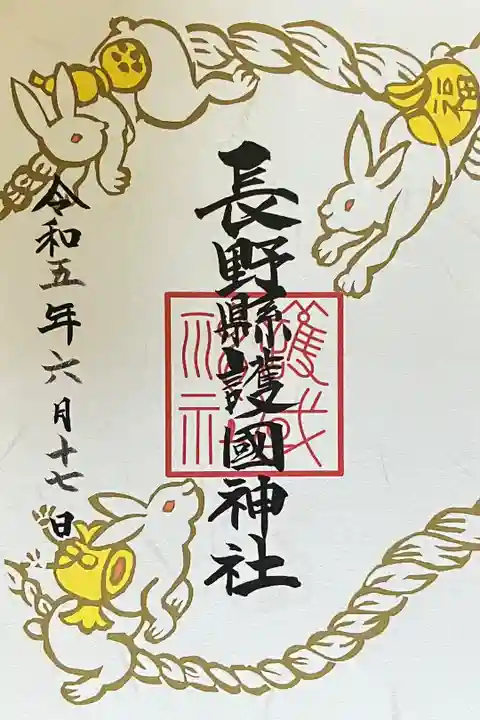 長野縣護國神社
令和五年六月十七日
福